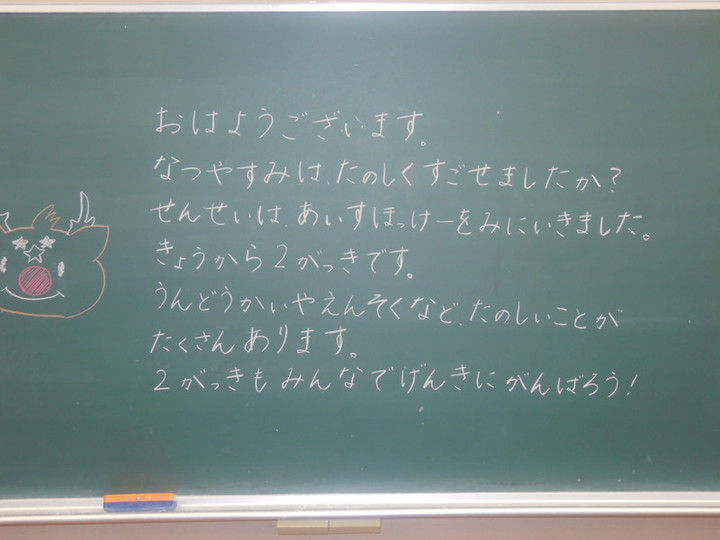 おはようございます。
なつやすみは、たのしくすごせましたか？
せんせいは、あいすほっけーをみにいきました。
きょうから２がっきです。
うんどうかいやえんそくなど、たのしいことが
たくさんあります。
２がっきもみんなでげんきにがんばろう！